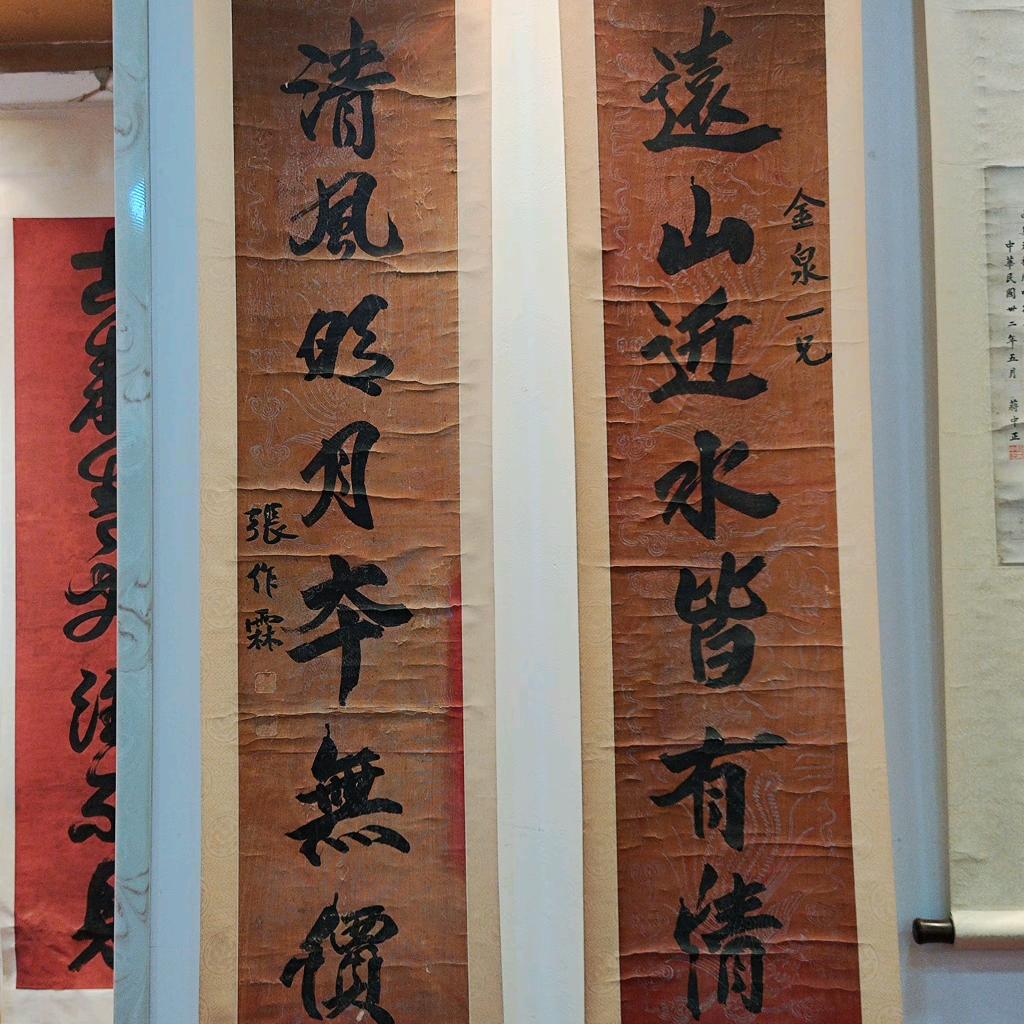 遠山近水皆有情
金泉一兄
清風明月本無價
張作霖
中華民國卅二年五月 蔣中正